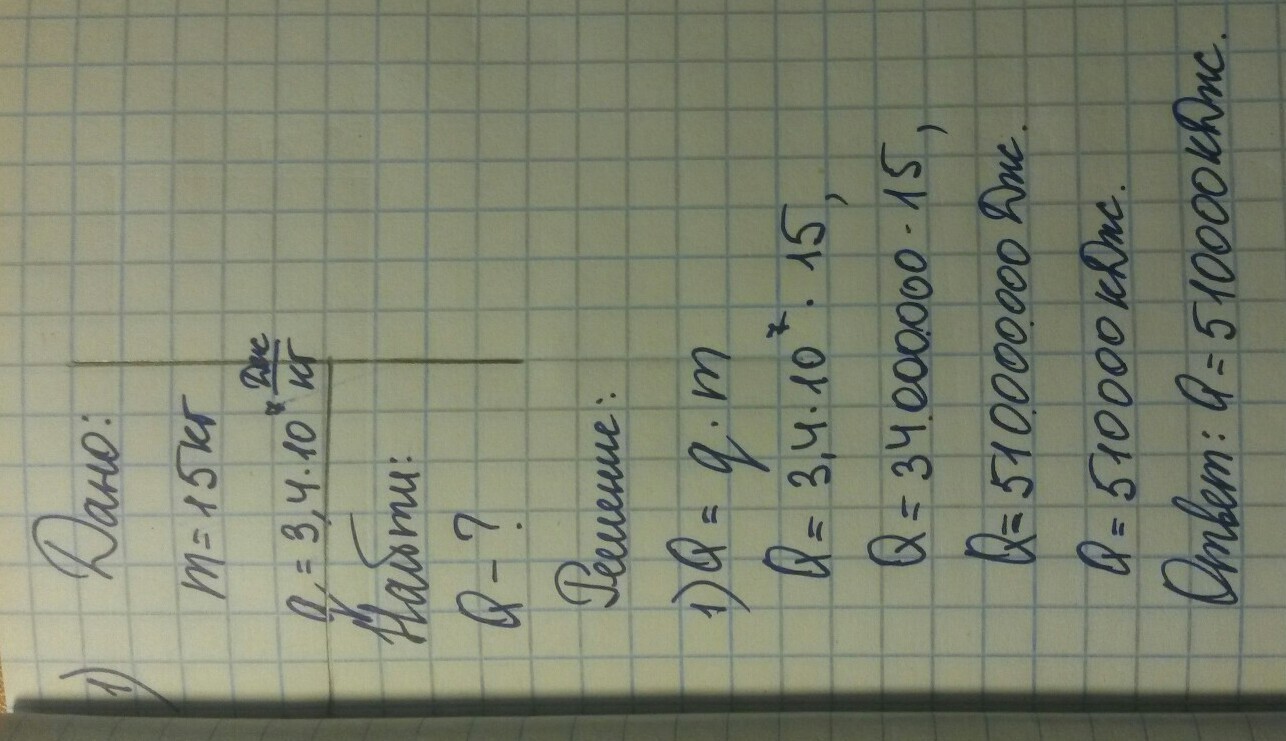 1) Дано:
m = 15 кг
q = 3,4 · 10⁷ Дж/кг
Найти:
Q – ?
Решение:
1) Q = q · m
Q = 3,4 · 10⁷ · 15,
Q = 34000000 · 15,
Q = 510000000 Дж.
Q = 510000 кДж.
Ответ: Q = 510000 кДж.